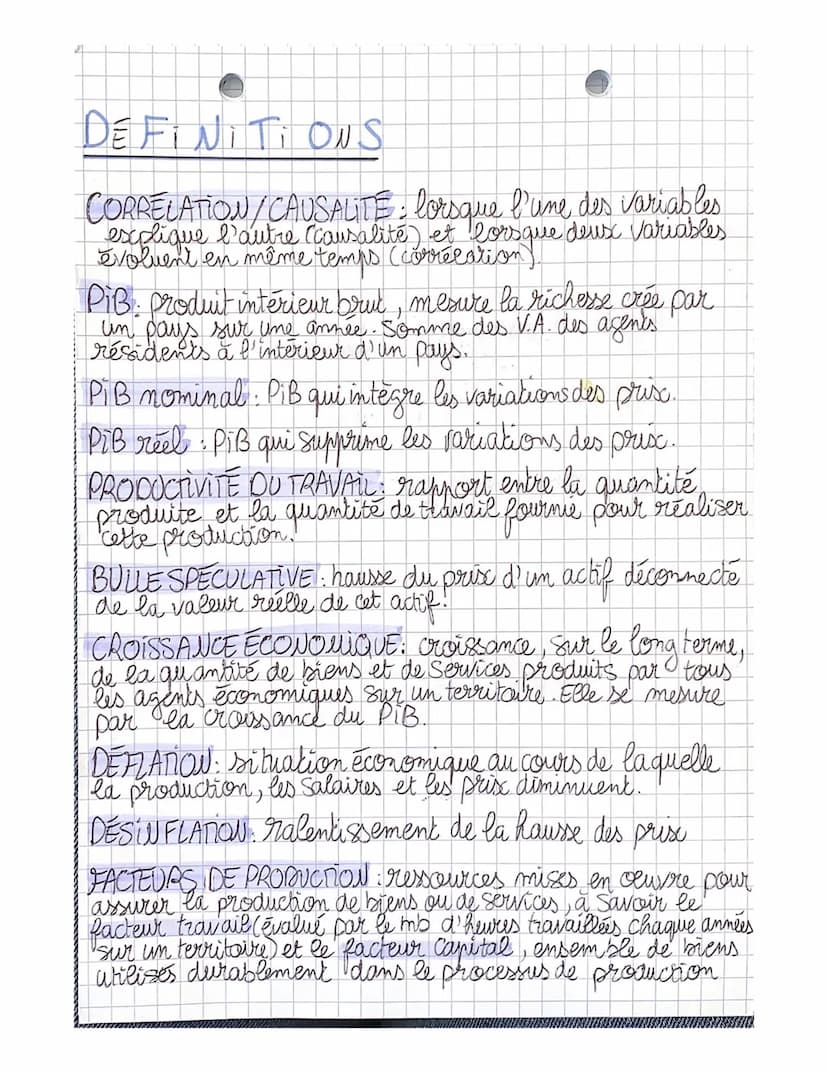 DÉFiNiTiONS
CORRÉLATiON/CAUSALiTÉ : lorsque l'une des variables
explique l'autre (causalité) et lorsque deux variables
évoluent en même temps (corrélation).
PiB : produit intérieur brut, mesure la richesse crée par
un pays sur une année. Somme des V.A. des agents
résidents à l'intérieur d'un pays.
PiB nominal : PiB qui intègre les variations des prix.
PiB réel : PiB qui supprime les variations des prix.
PRODUCTiViTÉ DU TRAVAiL : rapport entre la quantité
produite et la quantité de travail fournie pour réaliser
cette production.
BULLE SPÉCULATiVE : hausse du prix d'un actif déconnecté
de la valeur réelle de cet actif.
CROiSSANCE ÉCONOMiQUE : croissance, sur le long terme,
de la quantité de biens et de services produits par tous
les agents économiques sur un territoire. Elle se mesure
par la croissance du PiB.
DÉFLATiON : situation économique au cours de laquelle
la production, les salaires et les prix diminuent.
DÉSiNFLATiON : ralentissement de la hausse des prix
FACTEURS DE PRODUCTiON : ressources mises en oeuvre pour
assurer la production de biens ou de services, à savoir le
facteur travail (évalué par le nb d'heures travaillées chaque années
sur un territoire) et le facteur capital, ensemble de biens
utilisés durablement dans le processus de production